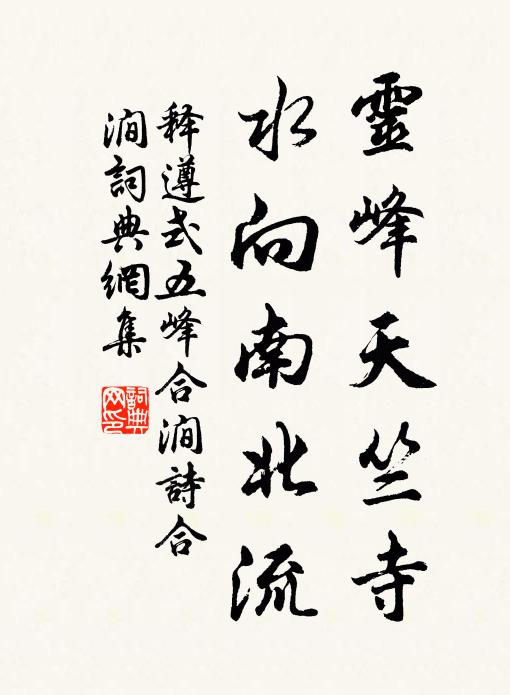 靈峰天竺寺
水向南北流
释遵式五峰合澗詩合
澗詞典網集
詞典
网印